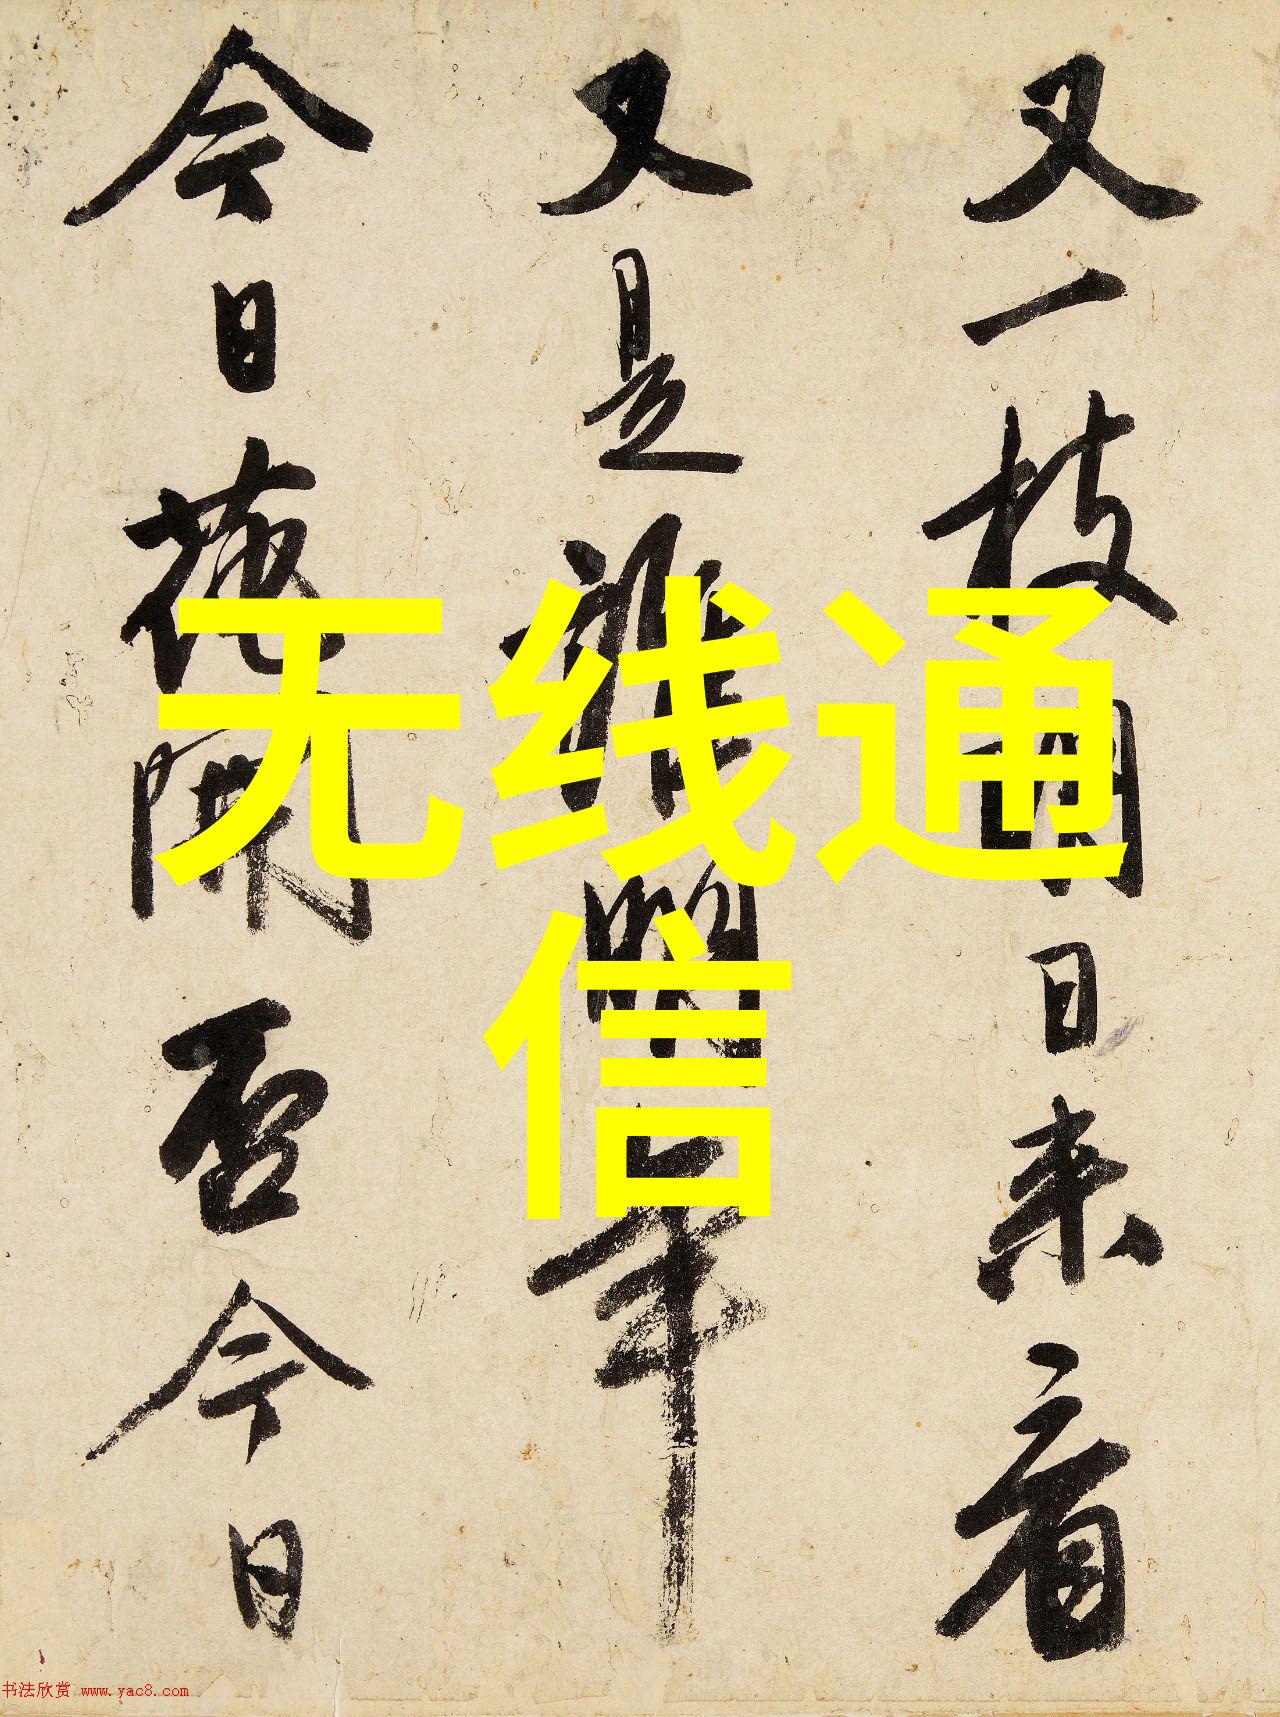 又一枝明日来看
又是誰明年
今日花開否今日
无线通
信
书法欣赏 www.yac8.com